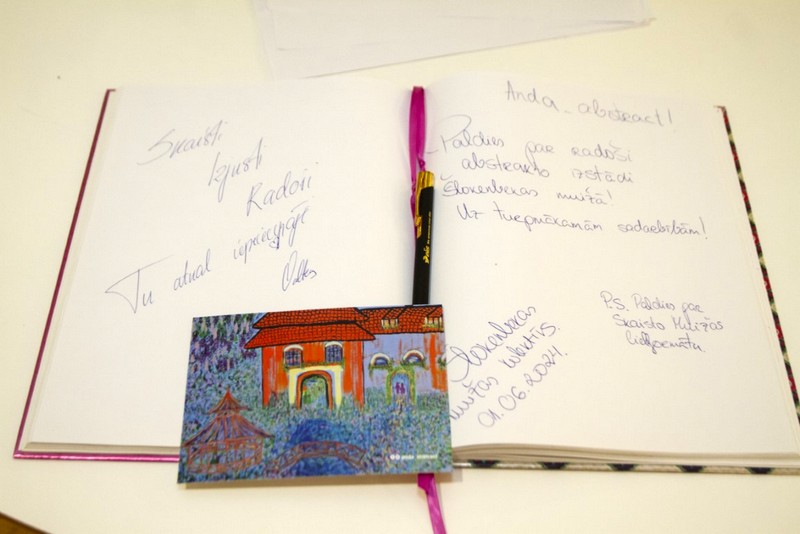 Skaisti
Izjusti
Radoši
Tu atkal iepriecināji
Anda - abstract!
Paldies par radoši
abstrakto izstādi
Šlokenbekas muižā!
Uz turpmākamām sadarbībām!
Šlokenbekas
muižas kolektīvs.
01.06.2024.
P.S. Paldies par
Skaisto Milzkalnes